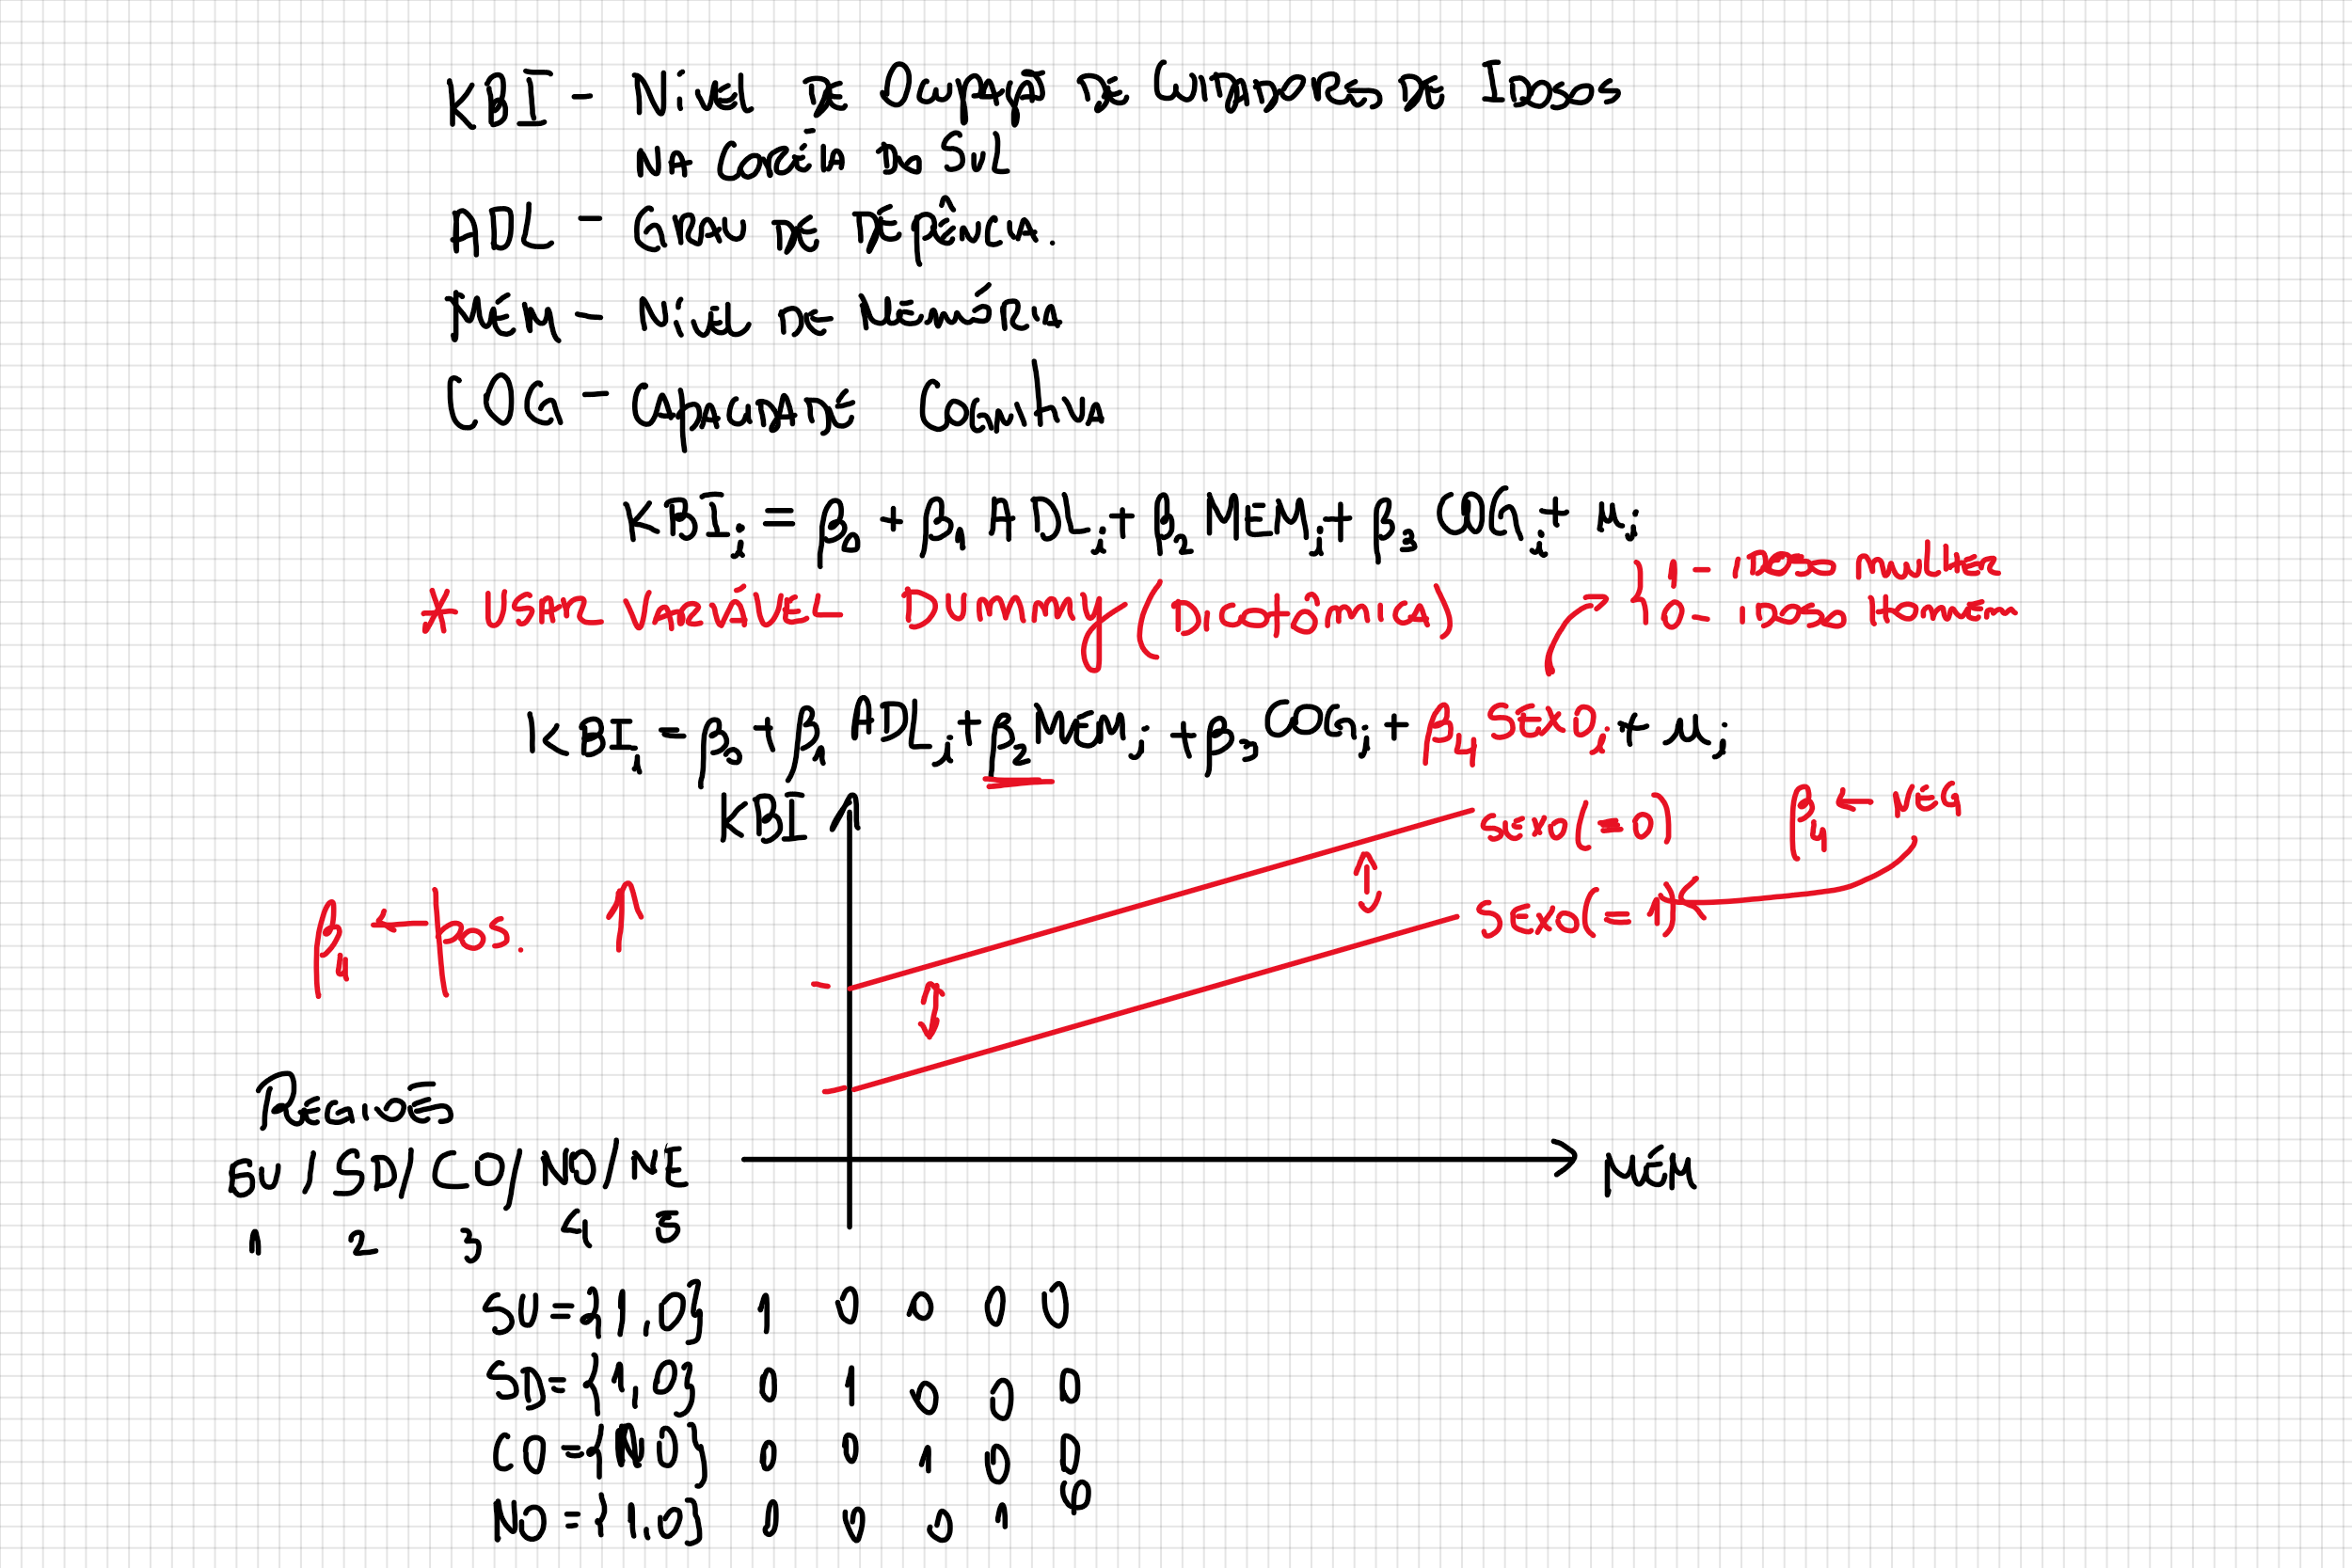 KBI - Nível de Ocupação de Cuidadores de Idosos
na Coréia do Sul
ADL - Grau de Depência.
MEM - Nível de Memória
COG - Capacidade Cognitiva
KBIᵢ = β₀ + β₁ ADLᵢ + β₂ MEMᵢ + β₃ COGᵢ + μᵢ
* Usar Varável Dummy (Dicotômica)
1 - idoso mulher
0 - idoso homem
KBIᵢ = β₀ + β₁ ADLᵢ + β₂ MEMᵢ + β₃ COGᵢ + β₄ SEXOᵢ + μᵢ
KBI
sexo(=0)
β₄ ← NEG
sexo(=1)
β₄ ← pos.
Regiões
SU / SD / CO / NO / NE
MEM
1 2 3 4 5
SU = {1,0} 1 0 0 0 0
SD = {1,0} 0 1 0 0 0
CO = {1,0} 0 0 1 0 0
NO = {1,0} 0 0 0 1 0